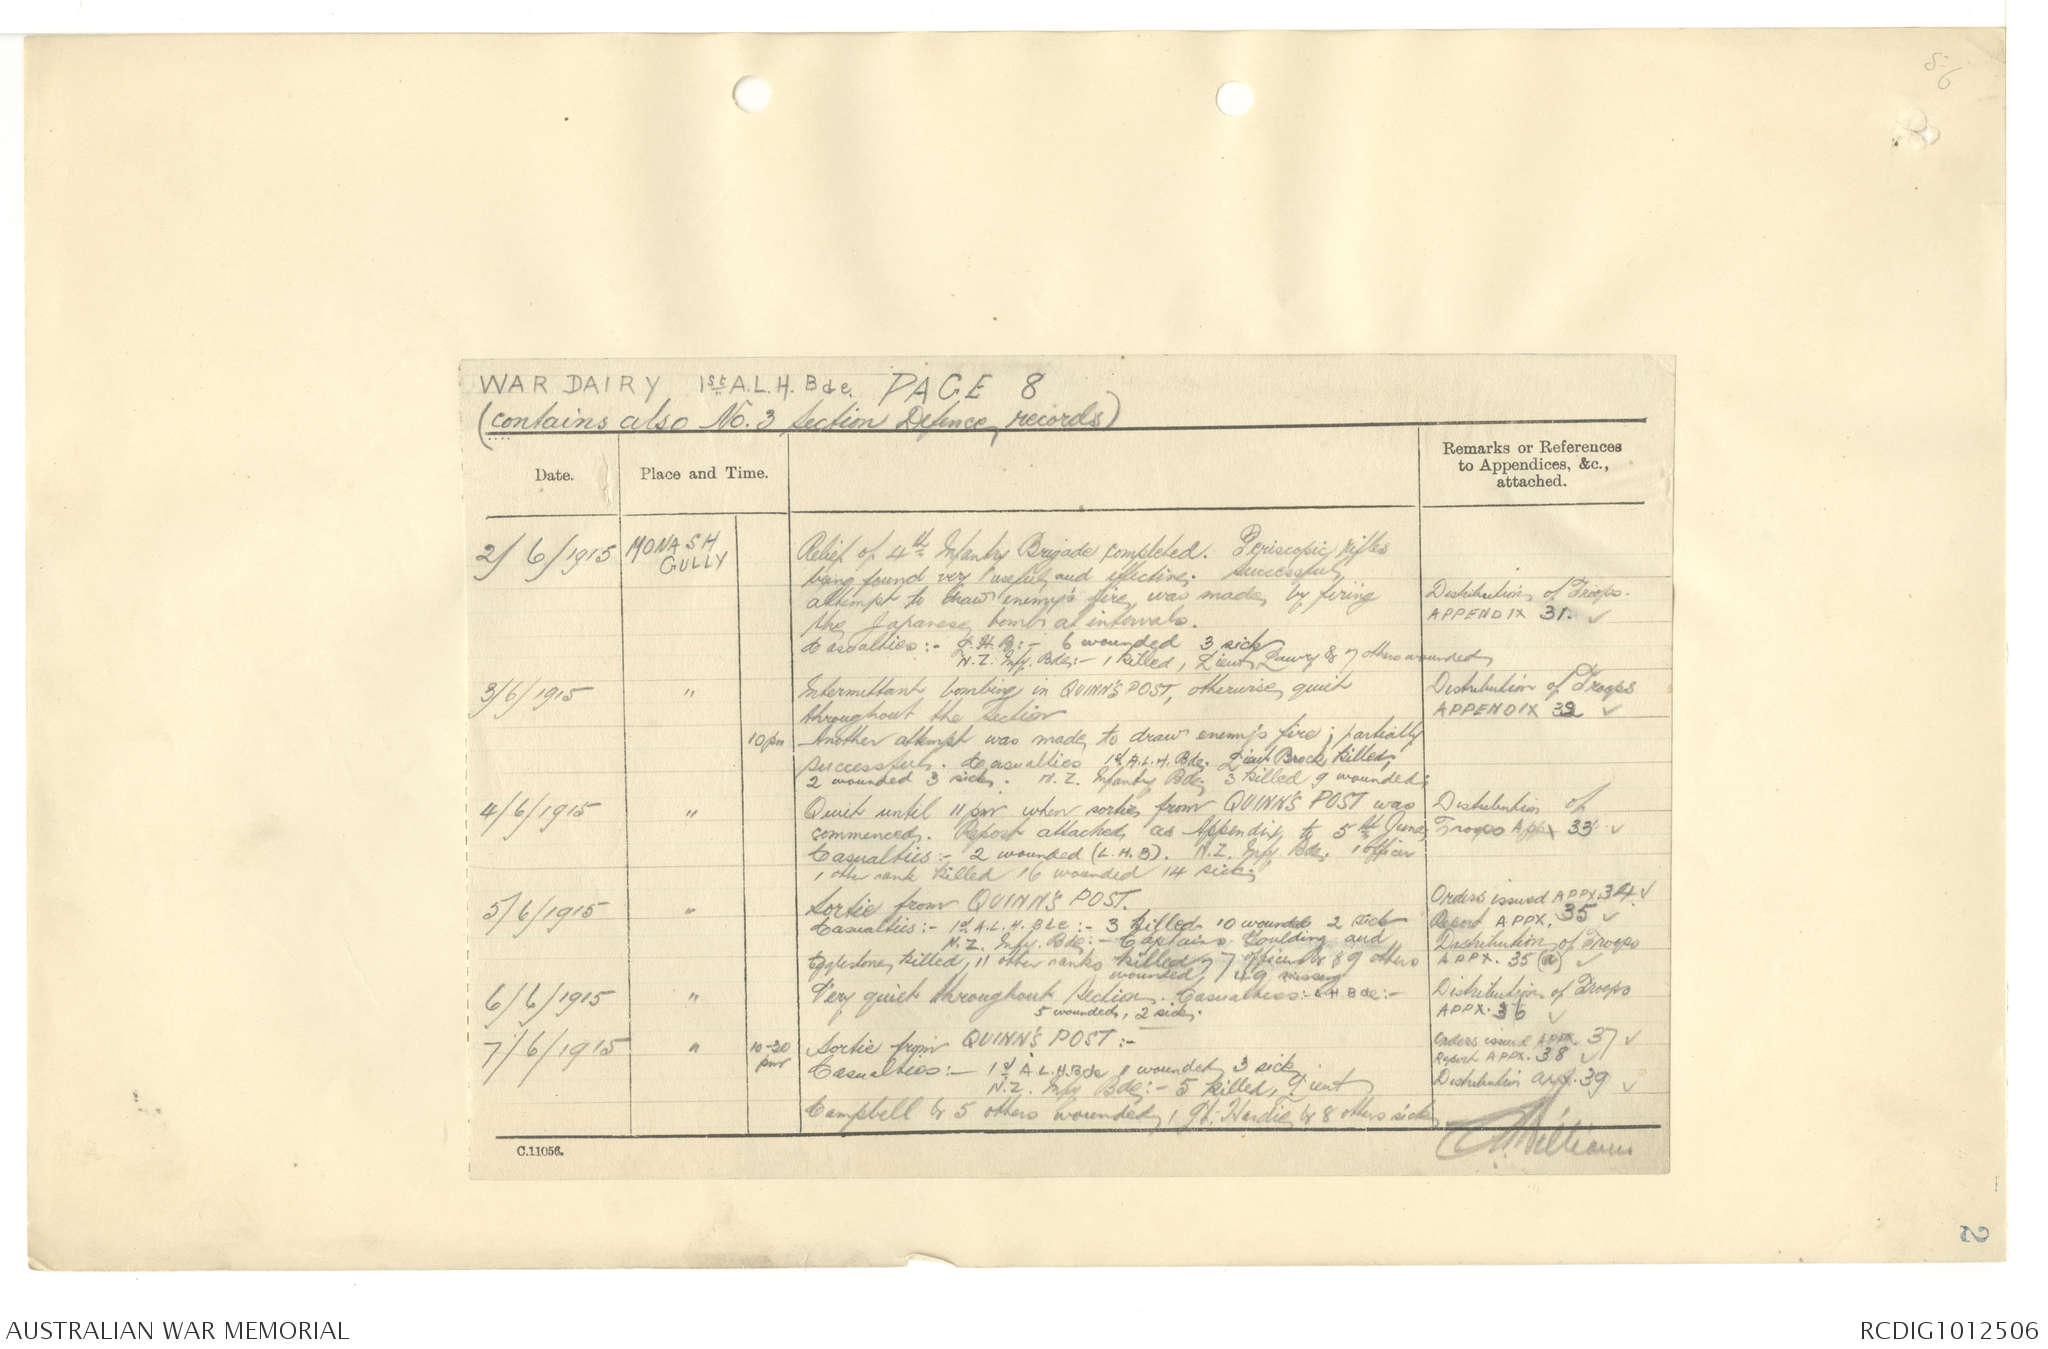 56
WAR DAIRY 1st A.L.H. Bde. PAGE 8
(contains also No. 3 Section Defence records)
Date.
Place and Time.
Remarks or References
to Appendices, &c.,
attached.
2/6/1915
MONASH
GULLY
Relief of 4th Infantry Brigade completed. Periscopic rifles
being found very useful and effective. Successful
attempt to draw enemy's fire was made by firing
the Japanese bomb at intervals.
Casualties:- L.H.B:- 6 wounded 3 sick
N.Z. Infy. Bde:- 1 killed, Lieut. & 7 others wounded
Distribution of Troops.
APPENDIX 31. ✓
3/6/1915
"
Intermittant bombing in QUINN'S POST, otherwise quiet
throughout the Section
10 pm
Another attempt was made to draw enemy's fire; partially
successful. Casualties 1st A.L.H. Bde. Lieut Brock killed,
2 wounded 3 sick. N.Z. Infantry Bde 3 killed 9 wounded.
Distribution of Troops
APPENDIX 32 ✓
4/6/1915
"
Quiet until 11 pm when sortie from QUINN'S POST was
commenced. Report attached as Appendix to 5th June.
Casualties:- 2 wounded (L.H.B). N.Z. Infy. Bde. 1 officer
1 other rank killed 16 wounded 14 sick.
Distribution of
Troops Appx 33 ✓
5/6/1915
"
Sortie from QUINN'S POST.
Casualties:- 1st A.L.H. Bde:- 3 killed 10 wounded 2 sick
N.Z. Infy. Bde:- Captains Goulding and
Egglestone killed, 11 other ranks killed, 7 officers & 89 others
wounded, 49 missing
Orders issued APPX. 34 ✓
Report APPX. 35 ✓
Distribution of Troops
APPX. 35 (a) ✓
6/6/1915
"
Very quiet throughout Section. Casualties:- L H Bde:-
5 wounded, 2 sick.
Distribution of Troops
APPX. 36 ✓
7/6/1915
"
10-30
pm
Sortie from QUINN'S POST:-
Casualties:- 1st A.L.H. Bde 1 wounded 3 sick
N.Z. Infy Bde:- 5 killed, Lieut
Campbell & 5 others wounded, Lt. Hardie & 8 others sick
Orders issued APPX. 37 ✓
Report APPX. 38 ✓
Distribution appx. 39 ✓
Williams
C.11056.
2
AUSTRALIAN WAR MEMORIAL
RCDIG1012506